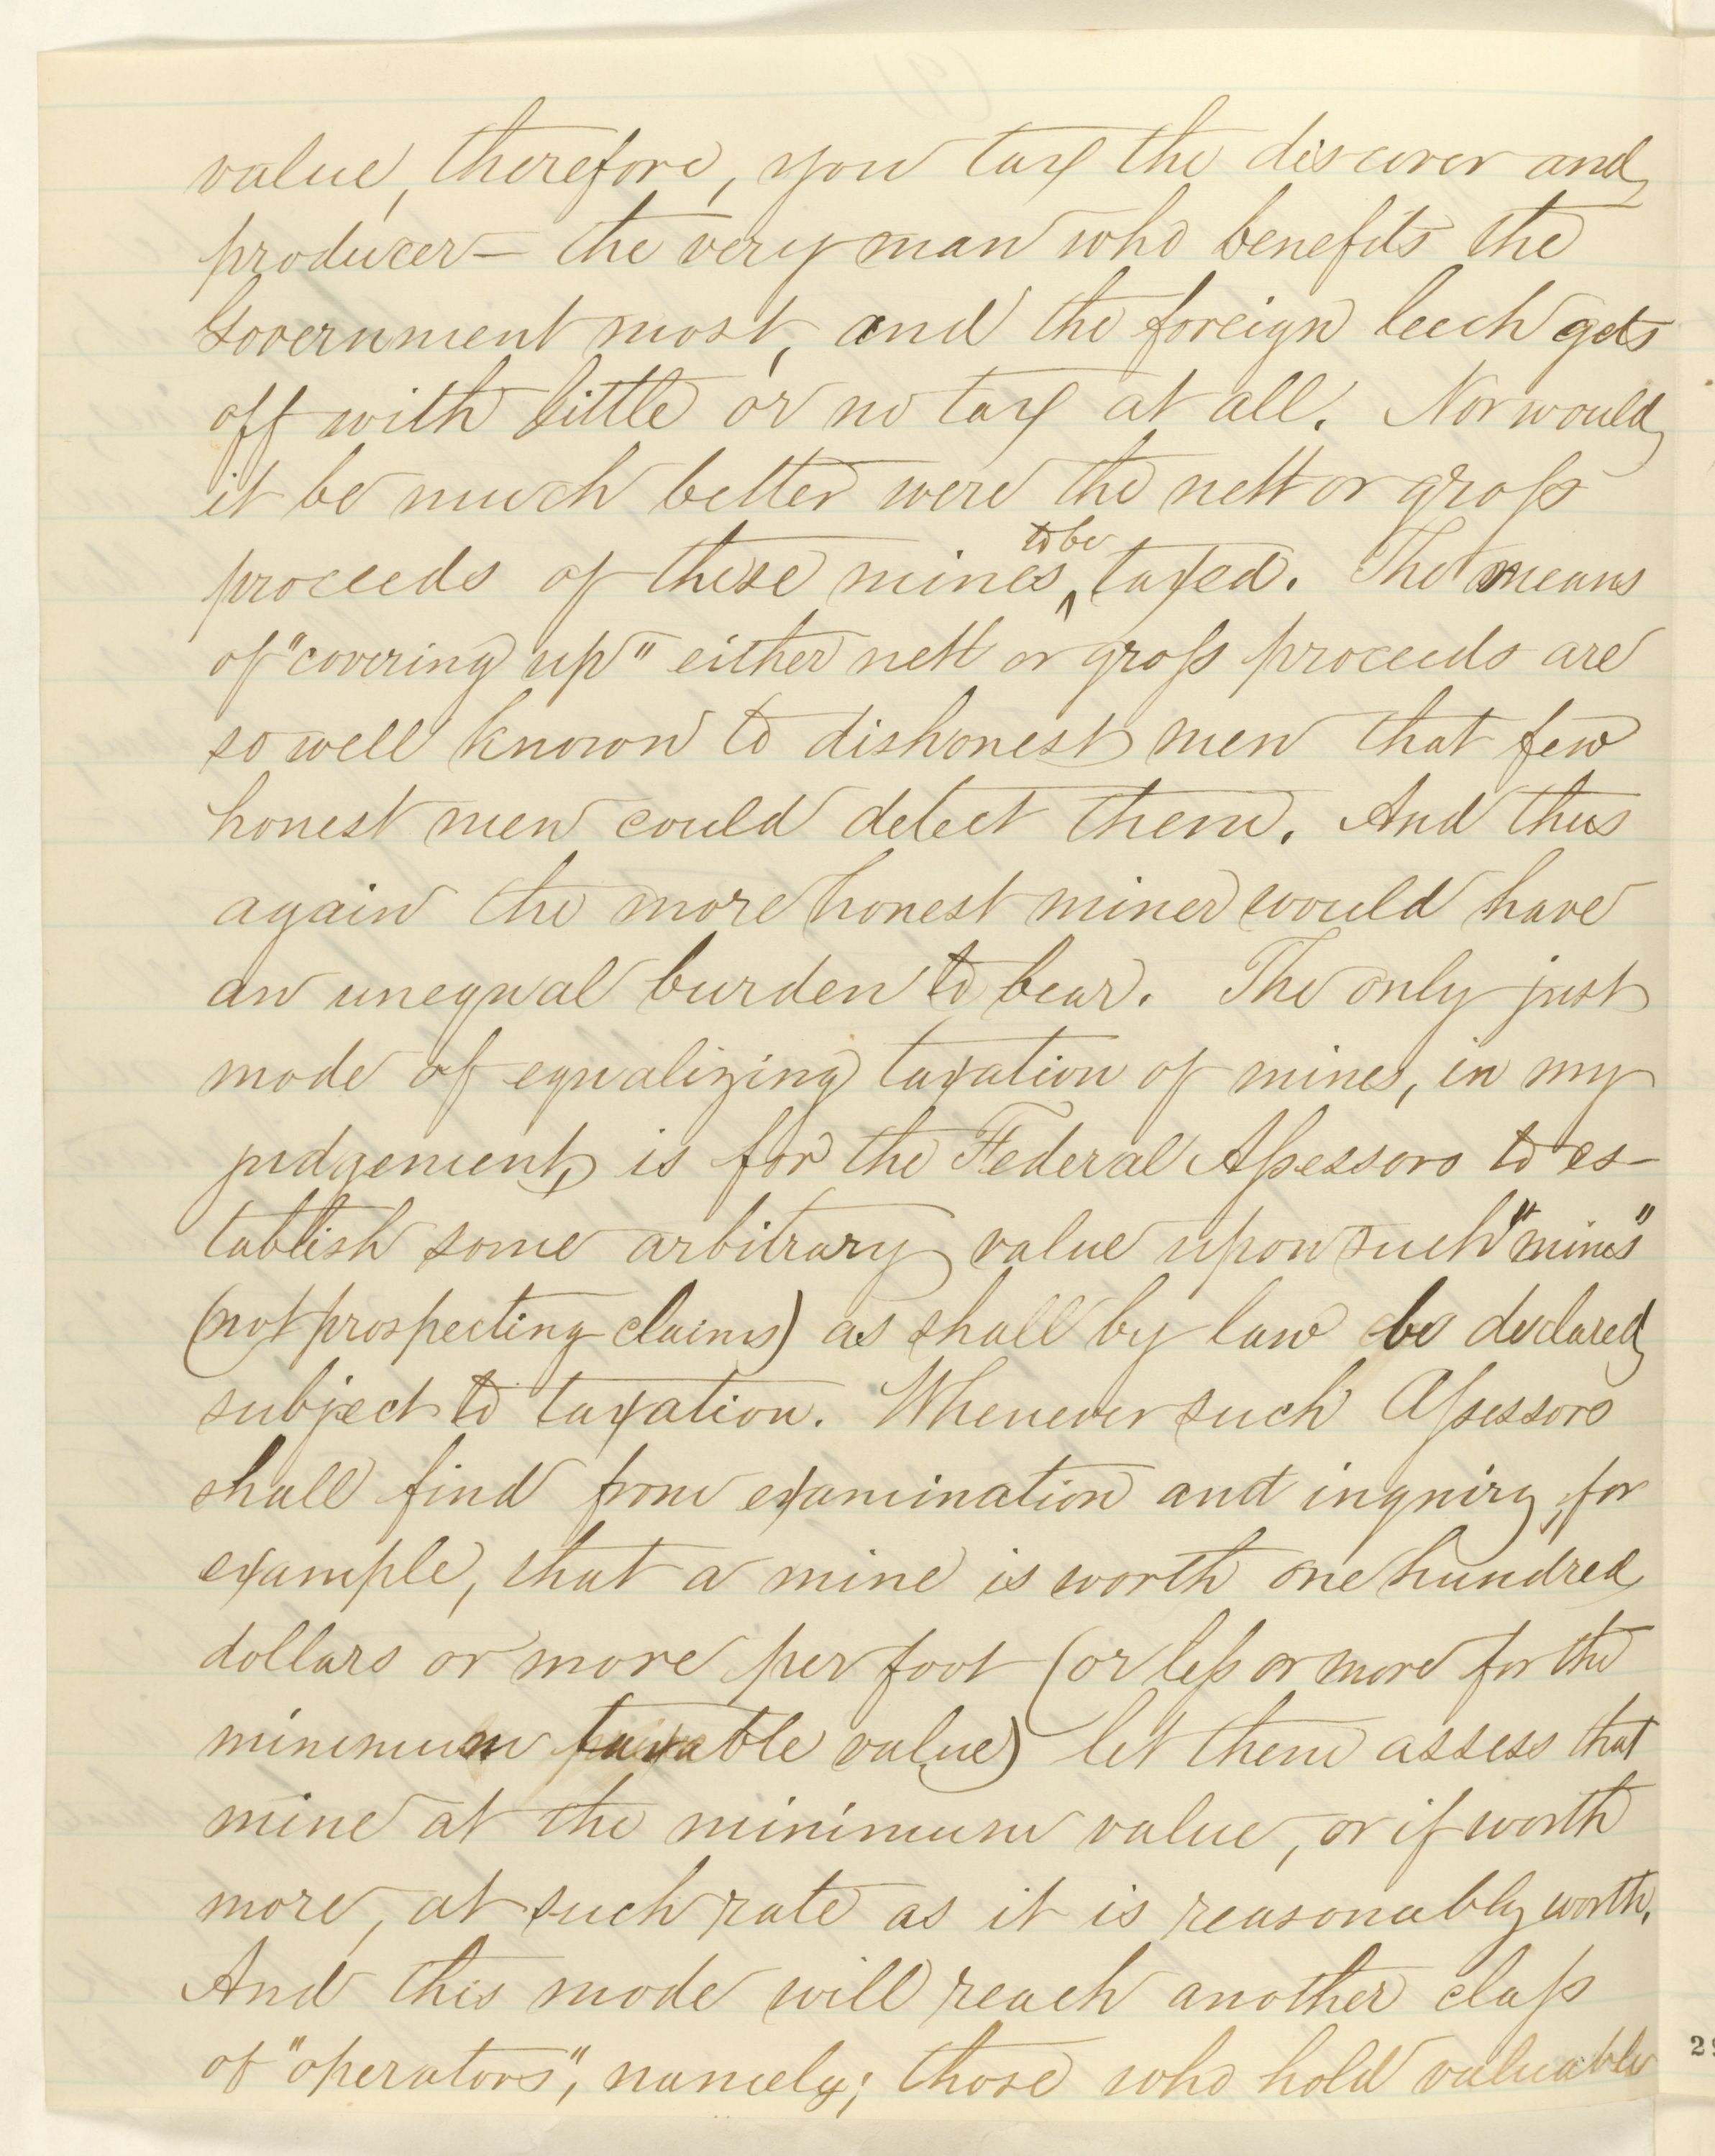 value, therefore, you tax the discover and
producer — the very man who benefits the
Government most, and the foreign leech gets
off with little or no tax at all. Nor would
it be much better were the nett or gross
proceeds of these mines ^to be^ taxed. The means
of "covering up" either nett or gross proceeds are
so well known to dishonest men that few
honest men could detect them. And thus
again the more honest miner would have
an unequal burden to bear. The only just
mode of equalizing taxation of mines, in my
judgement, is for the Federal Assessors to es-
tablish some arbitrary value upon such "mines"
(not prospecting claims) as shall by law be declared
subject to taxation. Whenever such Assessors
shall find from examination and inquiry, for
example, that a mine is worth one hundred
dollars or more per foot (or less or more for the
minimum taxable value) let them assess that
mine at the minimum value, or if worth
more, at such rate as it is reasonably worth.
And this mode will reach another class
of "operators", namely; those who hold valuable